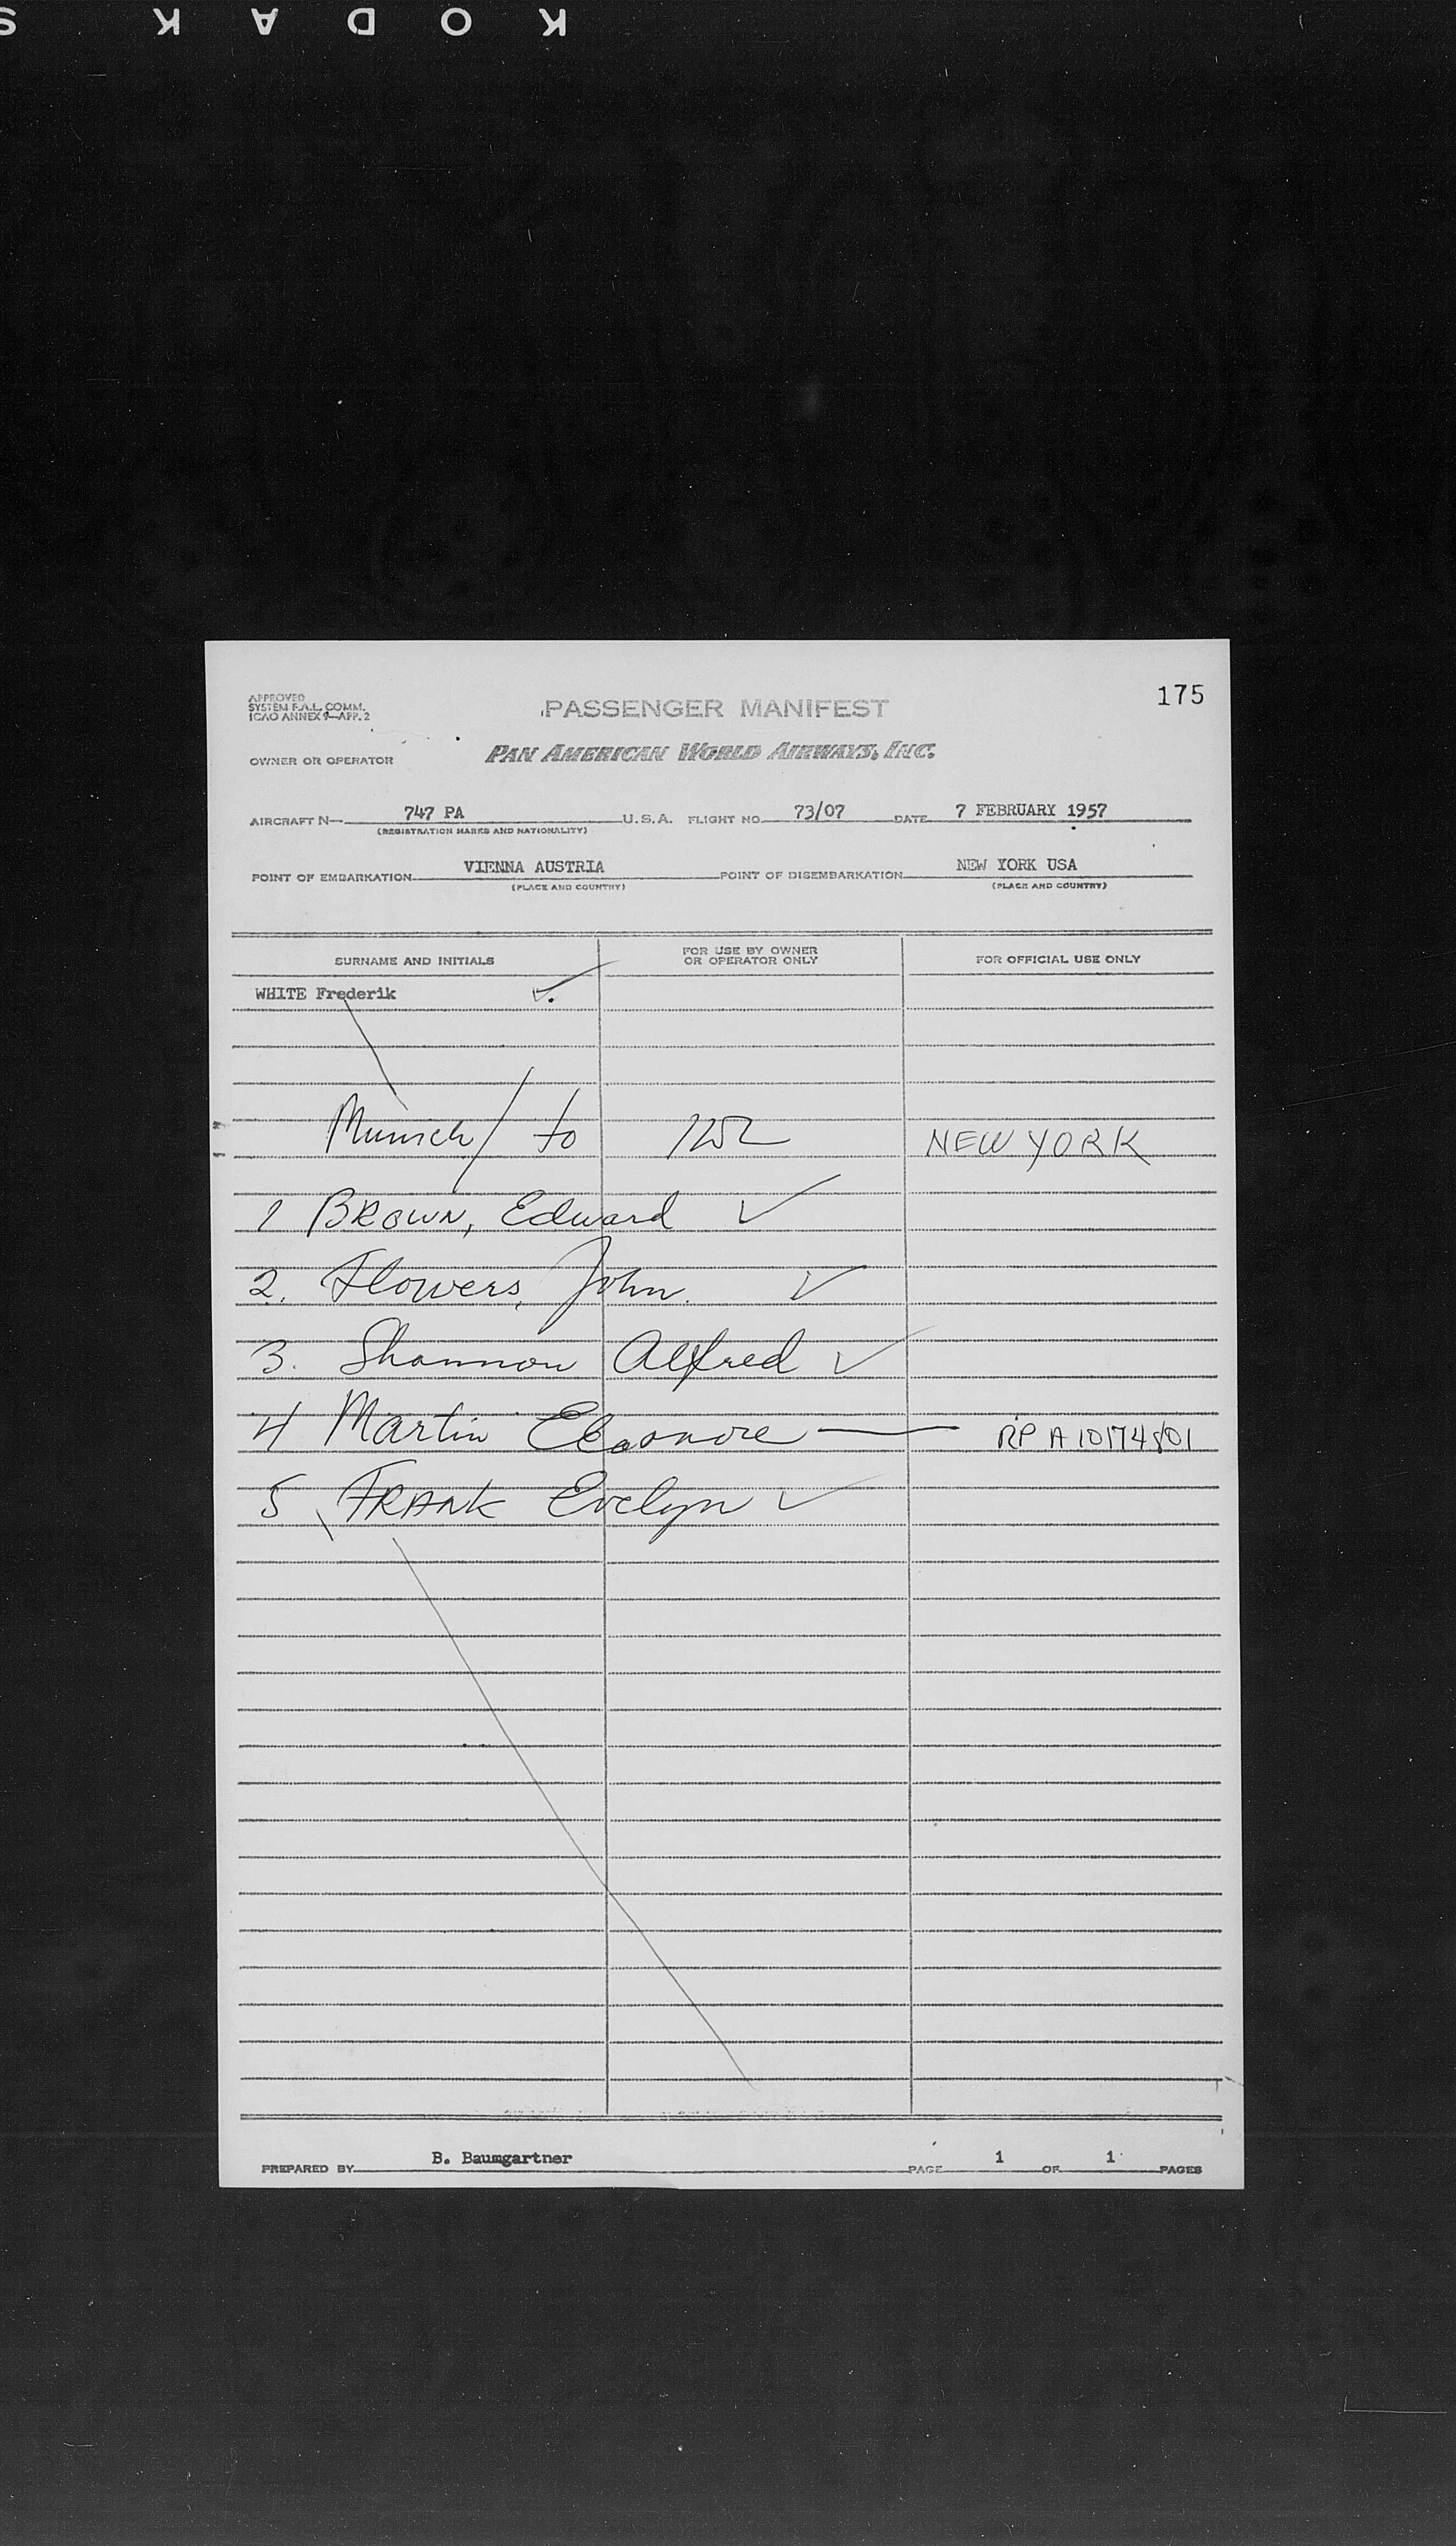 KODAK S
175
APPROVED
SYSTEM F.A.L. COMM.
ICAO ANNEX 9—APP. 2
PASSENGER MANIFEST
OWNER OR OPERATOR PAN AMERICAN WORLD AIRWAYS, INC.
AIRCRAFT N— 747 PA U.S.A. FLIGHT NO. 73/07 DATE 7 FEBRUARY 1957
(REGISTRATION MARKS AND NATIONALITY)
POINT OF EMBARKATION VIENNA AUSTRIA POINT OF DISEMBARKATION NEW YORK USA
(PLACE AND COUNTRY) (PLACE AND COUNTRY)
SURNAME AND INITIALS FOR USE BY OWNER OR OPERATOR ONLY FOR OFFICIAL USE ONLY
WHITE Frederik ✓
Munich / to NEW YORK
1 BROWN, Edward ✓
2. Flowers, John. ✓
3. Shannon Alfred ✓
4 Martin Eleonore — RP A10174801
5 FRANK Evelyn ✓
PREPARED BY B. Baumgartner PAGE 1 OF 1 PAGES